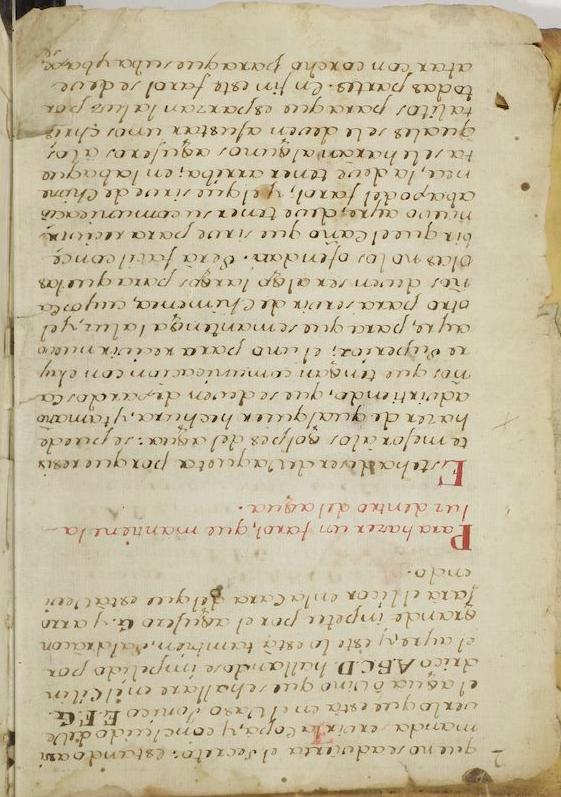 que no se advierta el Secreto: estando asi
manda servir la Copa, y concluido de be
verlo que está en el Vaso Conico E.F.G.
el agua ò vino que se hallare en il Cilin
drico A.B.C.D. hallandose impelido por
el ayre, y este lo està tambien, saldrà con
grande impetu por el agujero G. y arro
jarà el licor en la Cara del que està bevi
endo.
Para hazer un farol, que mantiene la
luz dentro del agua.
Este ha de ser de Vaqueta porque resis
te mejor à los golpes del agua: se puede
hazer de qualquier hechura, y tamaño
advirtiendo, que se deven dexar dos Ca
ños que tengan comunicacion con el ay
re Superior; el uno para recivir nuevo
ayre, para que se mantenga la luz, y el
otro para servir de Chimenea, cuyos Ca
ños deven ser algo largos para que las
Olas no los ofendan. Serà facil conce
bir que el Caño que sirve para recivir
nuevo ayre, deve tener su comunicaciò
abajo del farol, y el que sirve de Chime
nea, la deve tener arriba; en la baque
ta se le haran algunos agujeros à los
quales se le deven ajustar unos chris
talitos para que esparzan la luz por
todas partes. En fin este farol se deve
atar con corcho para que suba y baxe